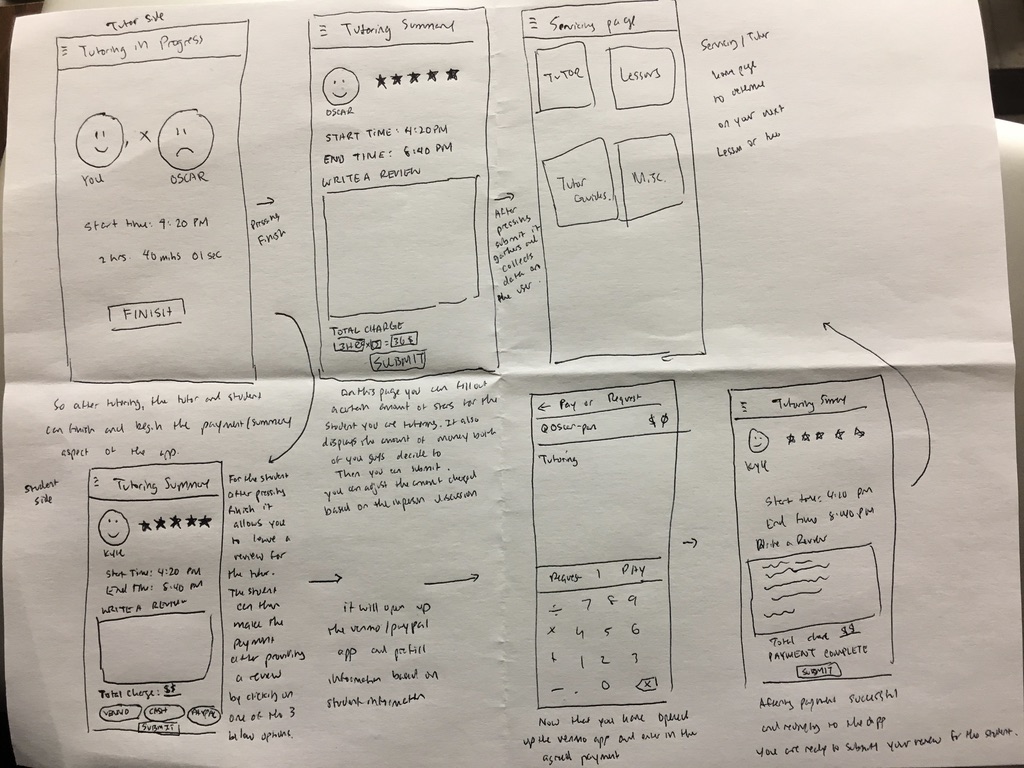 Tutor side
Tutoring in Progress
You
x
OSCAR
Start time: 4:20 PM
2 hrs 40 mins 01 sec
FINISH
Pressing
Finish
So after tutoring, the tutor and student
can finish and begin the payment/summary
aspect of the app.
Tutoring Summary
OSCAR
START TIME: 4:20PM
END TIME: 6:40 PM
WRITE A REVIEW
TOTAL CHARGE
SUBMIT
On this page you can fill out
a certain amount of stars for the
student you are tutoring. It also
displays the amount of money both
of you guys decide to
Then you can submit.
you can adjust the amount charged
based on the inperson discussion
After
pressing
submit it
gathers and
collects
data on
the user.
Servicing page
TUTOR
Lessons
Tutor
Guides.
Misc.
Servicing / Tutor
home page
to
on your next
Lesson or
Student
side
Tutoring Summary
KYLE
Start Time: 4:20 PM
End Time: 5:40 PM
WRITE A REVIEW
Total Charge: $$
VENMO CASH PAYPAL
SUBMIT
For the student
after pressing
finish it
allows you
to leave a
review for
the tutor.
The student
can then
make the
payment
after providing
a review
by clicking on
one of the 3
below options.
it will open up
the venmo/paypal
app and prefill
information based on
student information
← Pay or Request
@Oscar-pan
$0
Tutoring
Request | PAY
÷ 7 8 9
x 4 5 6
+ 1 2 3
- . 0 X
Now that you have opened
up the venmo app and enter in the
agreed payment
Tutoring
KYLE
Start time: 4:20 PM
End Time 5:40 PM
Write a Review
Total charge $$
PAYMENT COMPLETE
SUBMIT
payment successful
and to the App
you are ready to submit your review for the student.